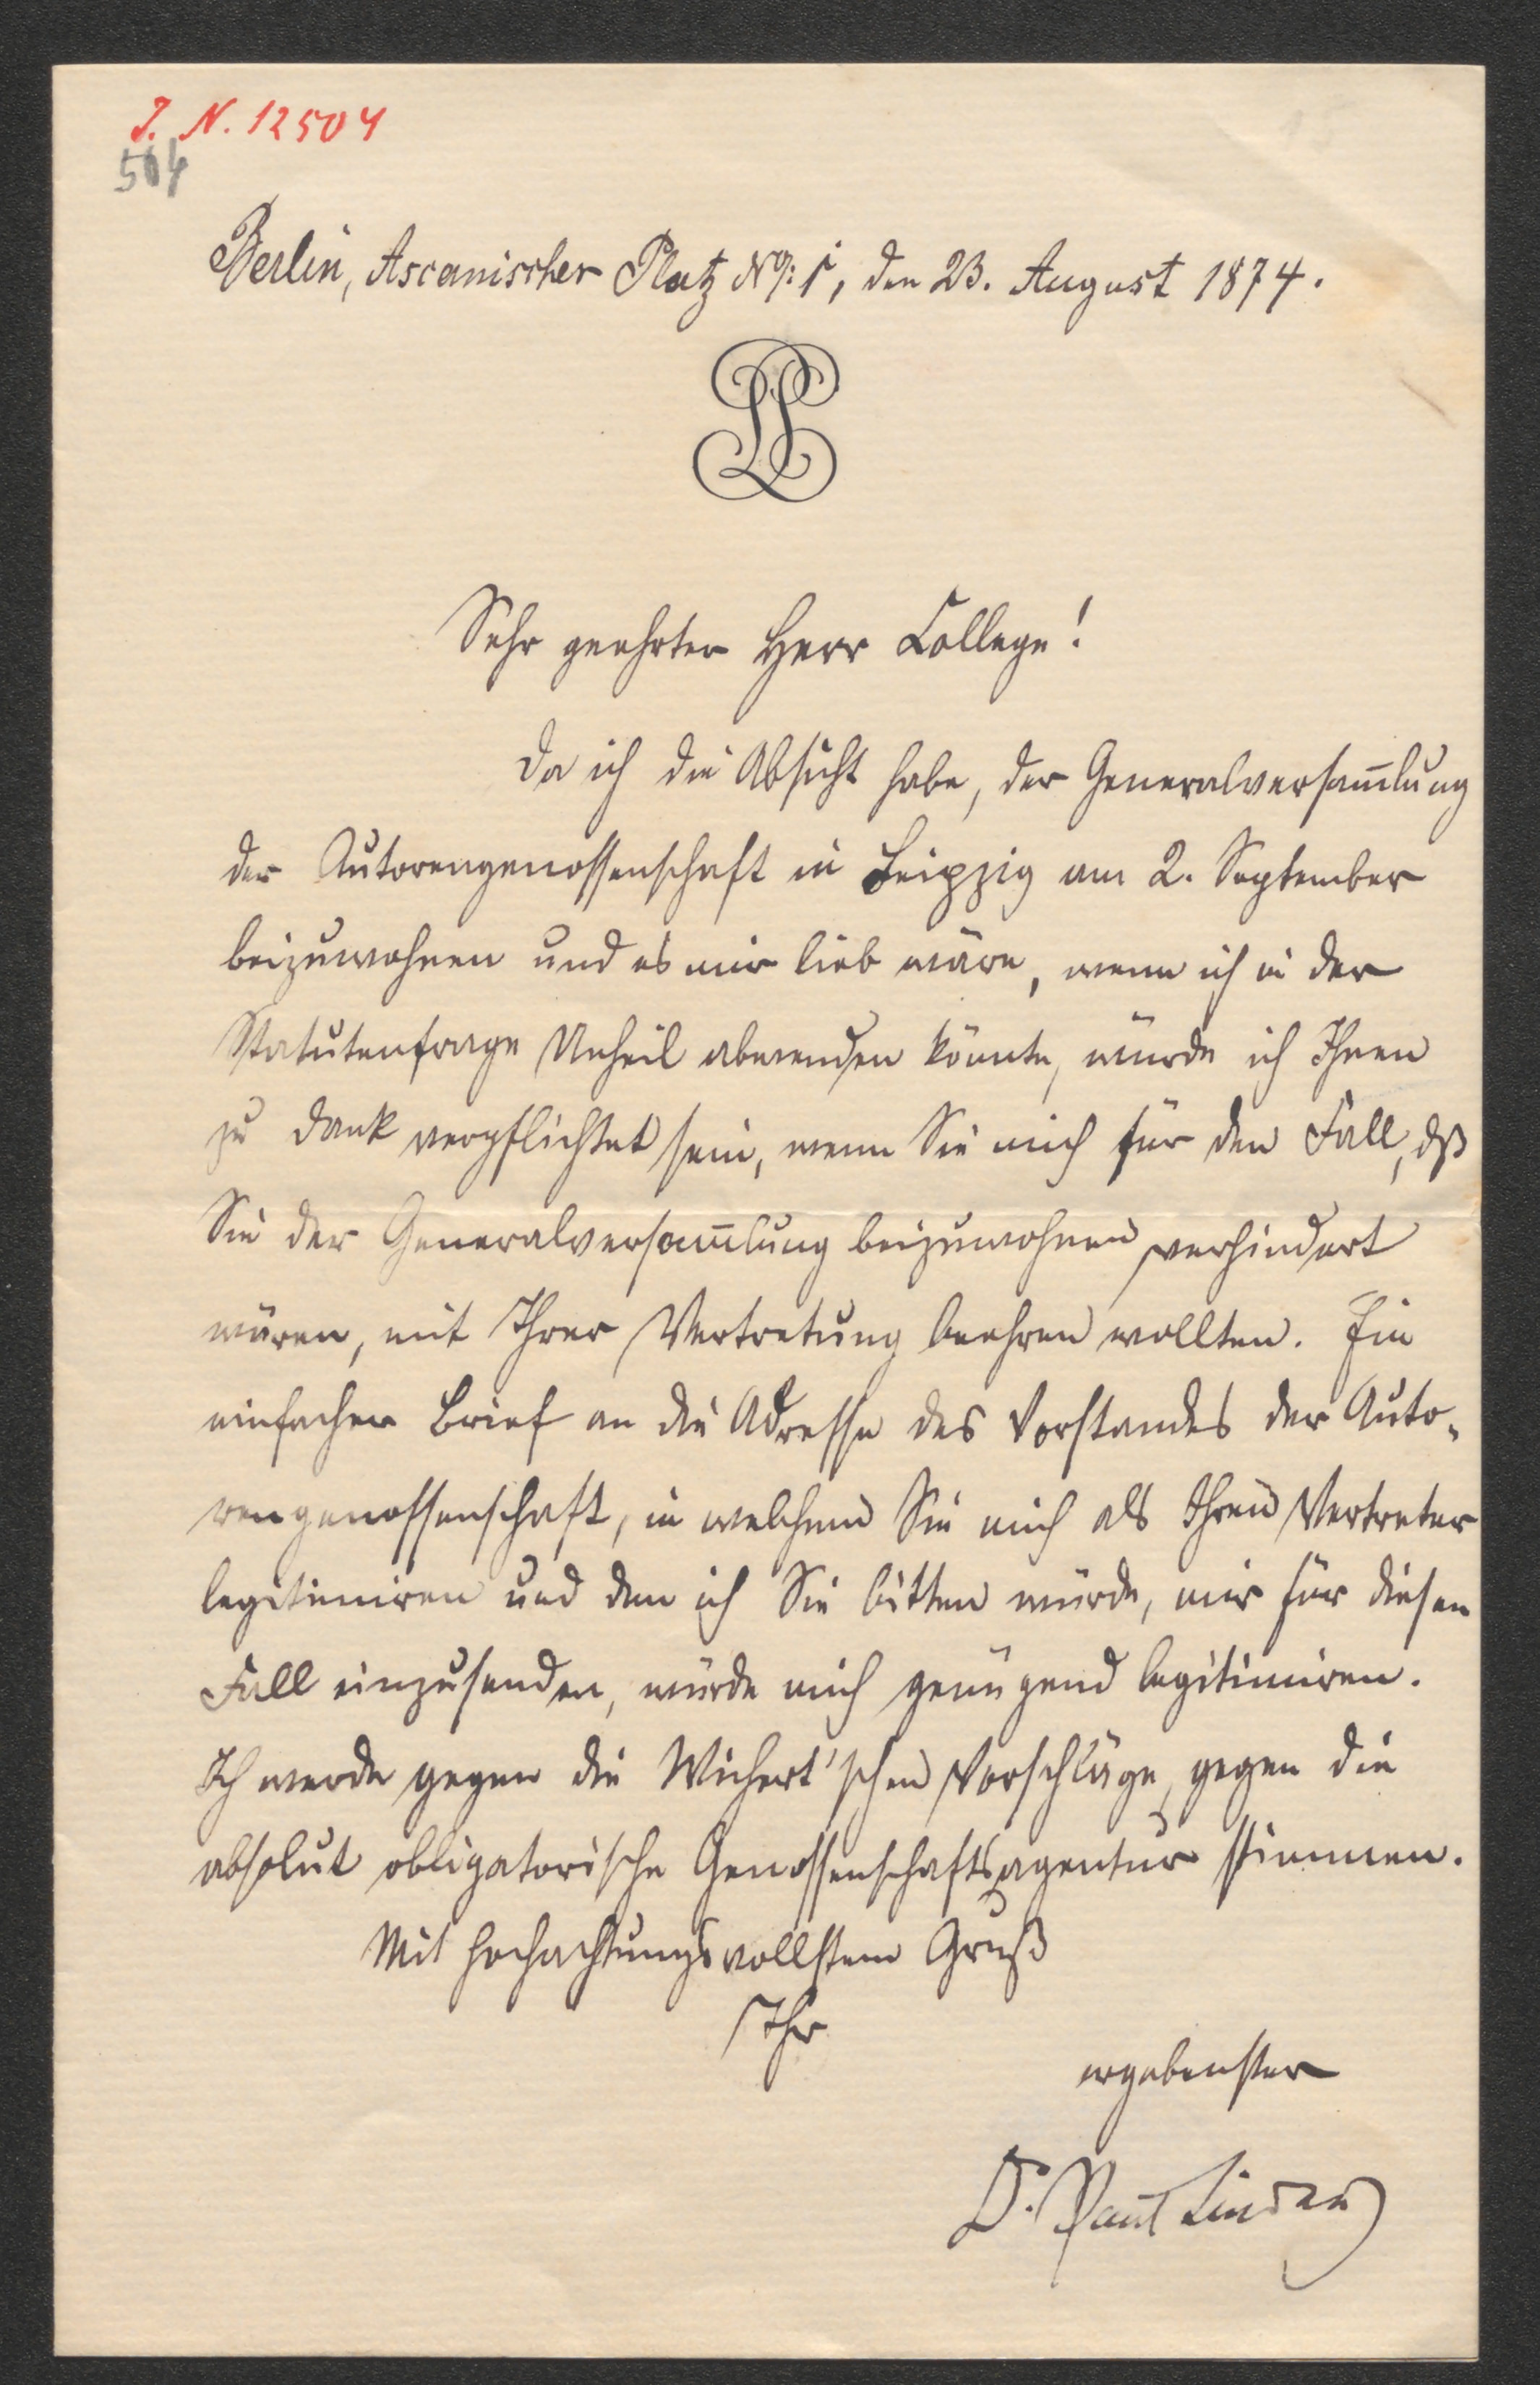 J. N. 12504
504
Berlin, Ascanischer Platz No: 1, den 23. August 1874.
PL
Sehr geehrter Herr College!
Da ich die Absicht habe, der Generalversam̄lung
der Autorengenossenschaft in Leipzig am 2. September
beizuwohnen und es mir lieb wäre, wenn ich in der
Statutenfrage Unheil abwenden könnte, würde ich Ihnen
zu Dank verpflichtet sein, wenn Sie mich für den Fall, dß
Sie der Generalversam̄lung beizuwohnen verhindert
wären, mit Ihrer Vertretung beehren wollten. Ein
einfacher Brief an die Adresse des Vorstandes der Auto-
rengenossenschaft, in welchem Sie mich als Ihren Vertreter
legitimiren und den ich Sie bitten würde, mir für diesen
Fall einzusenden, würde mich genügend legitimiren.
Ich werde gegen die Wichert'schen Vorschläge, gegen die
absolut obligatorische Genossenschaftsagentur stimmen.
Mit hochachtungsvollstem Gruß
Ihr
ergebenster
Dr. Paul Lindau